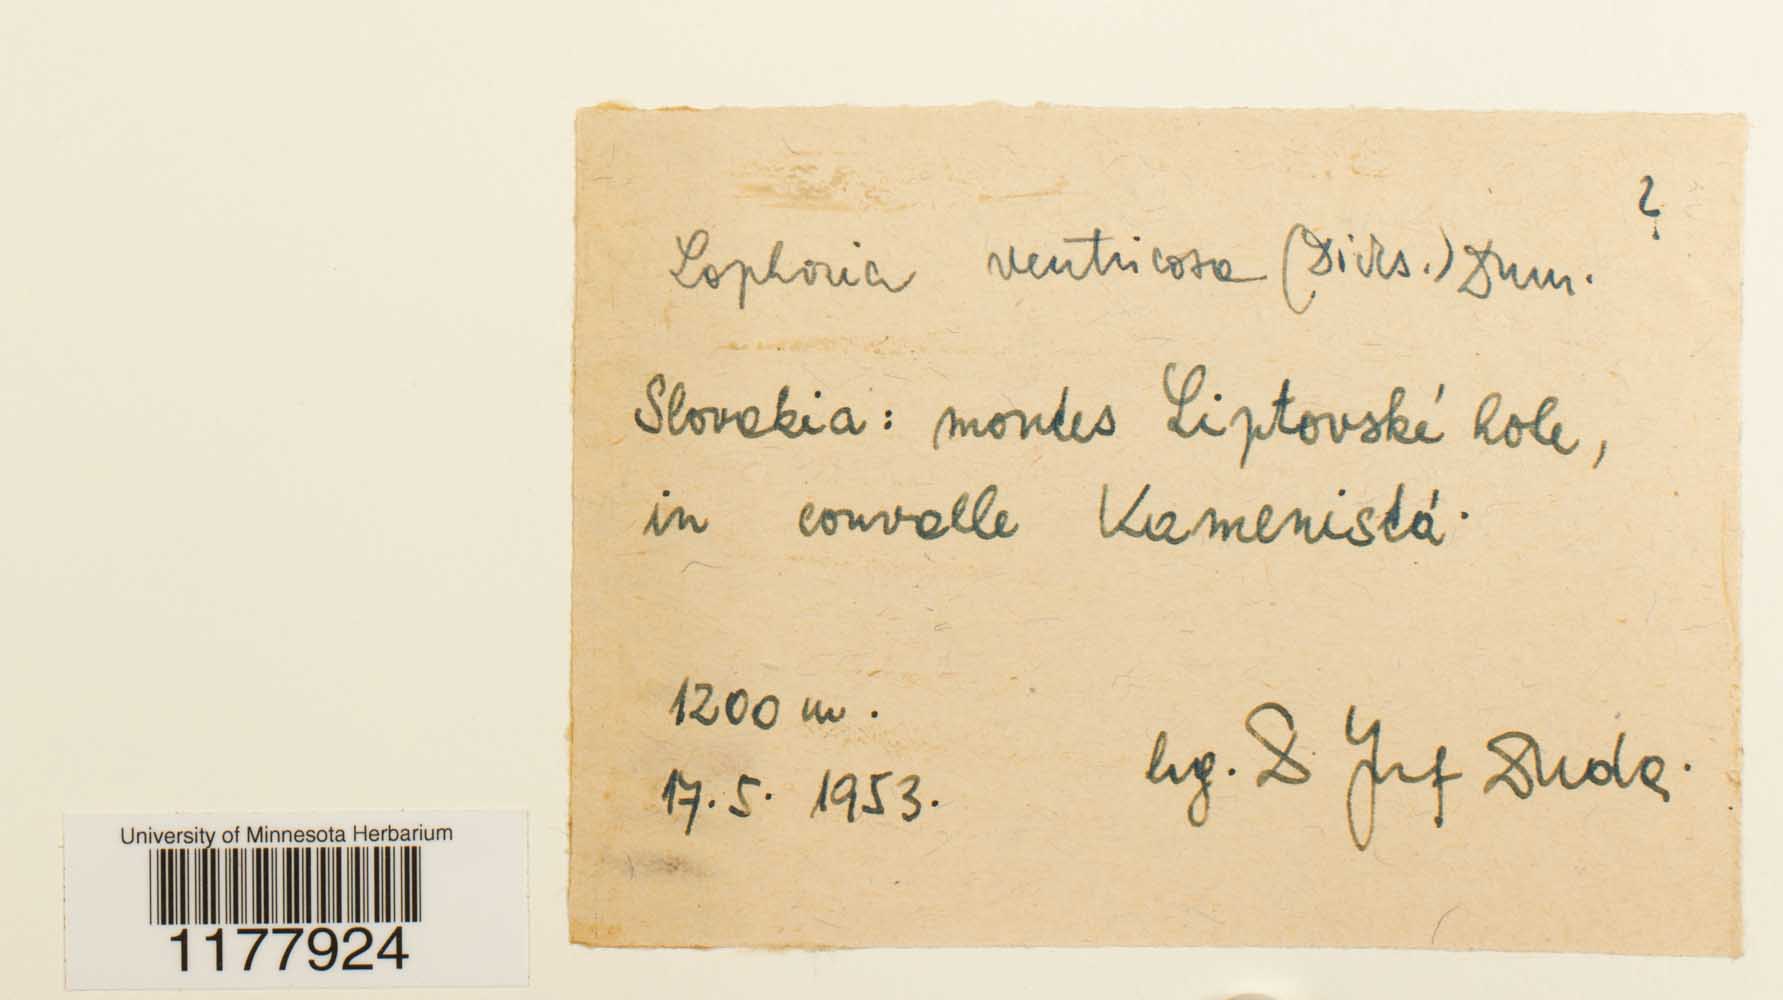 ?
Lophozia ventricosa (Dicks.) Dum.
Slovakia: montes Liptovské hole,
in convalle Kamenistá.
1200 m.
17. 5. 1953.
leg. D Josef Duda.
University of Minnesota Herbarium
1177924